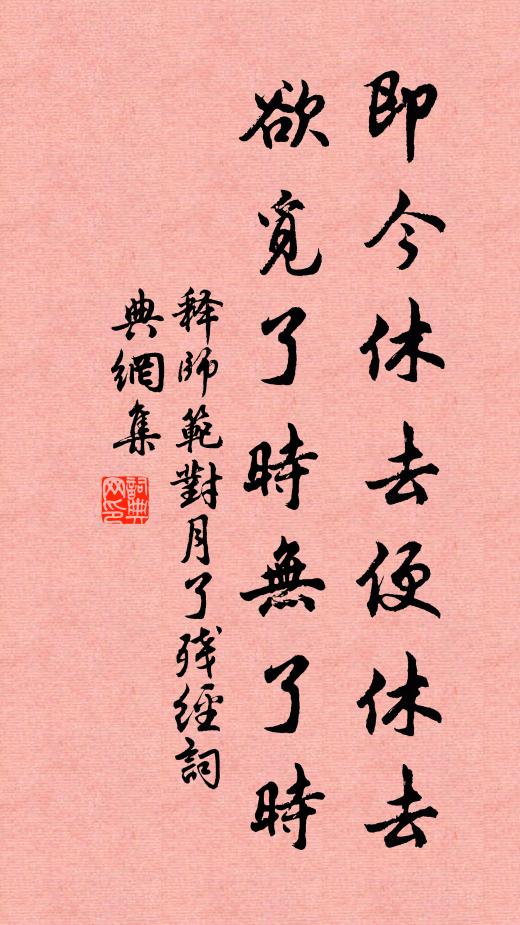 即今休去便休去
欲覓了時無了時
释師範對月了残經詞
典網集
詞典
网印